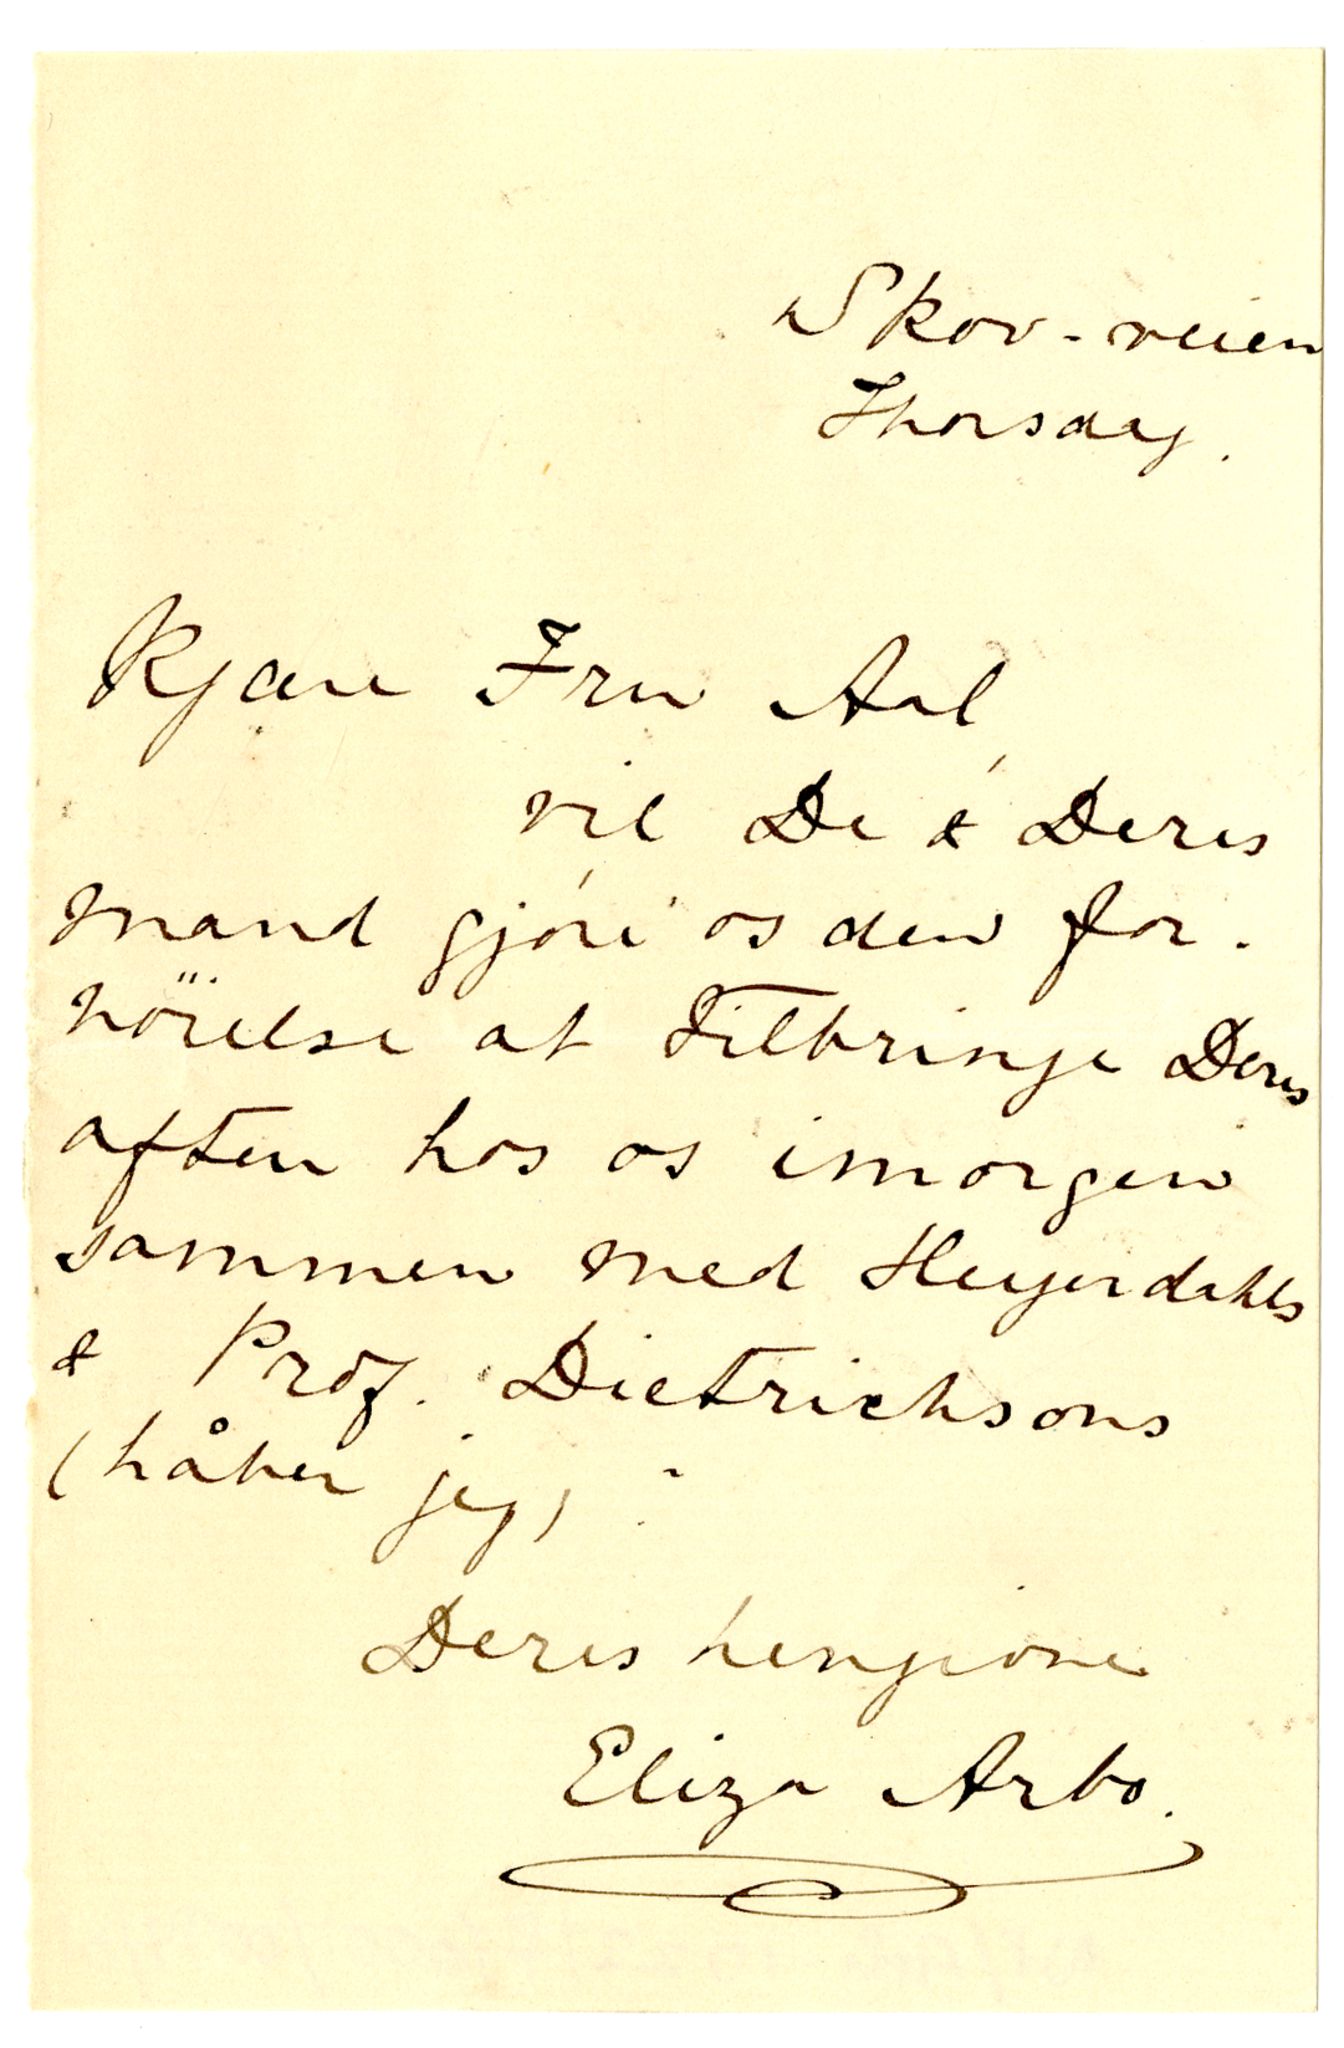 Skov-veien
Thorsdag.
Kjære Fru Aal,
vil De & Deres
mand gjöre os den for-
nöielse at tilbringe Deres
aften hos os imorgen
sammen med Heyerdahls
& Prof. Dietrichsons
(håber jeg)
Deres hengivne
Eliza Arbo.